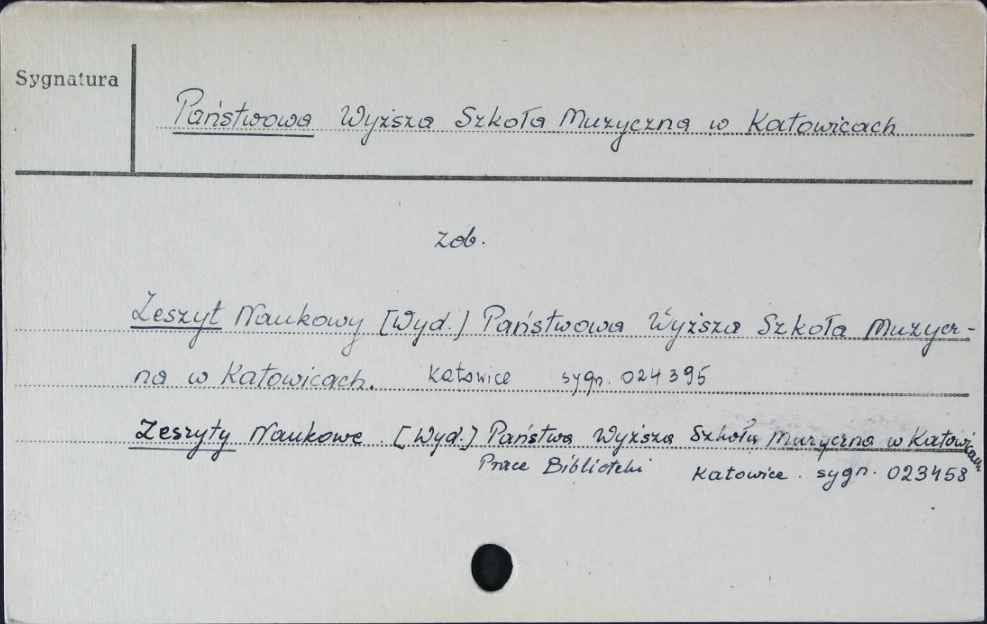 Sygnatura
Państwowa Wyższa Szkoła Muzyczna w Katowicach
zob.
Zeszyt Naukowy [Wyd.] Państwowa Wyższa Szkoła Muzycz-
na w Katowicach. Katowice sygn. 024395
Zeszyty Naukowe. [Wyd.] Państwa Wyższa Szkoła Muzyczna w Katowicach
Prace Biblioteki Katowice. sygn. 023458